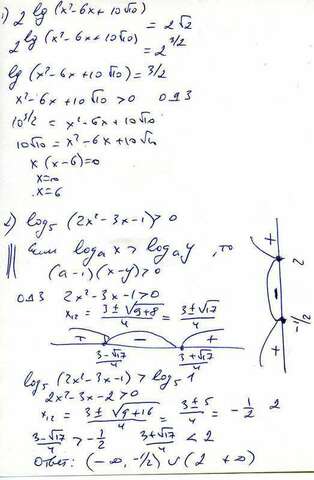 1) 2^lg(x²-6x+10√10) = 2√2
2^lg(x²-6x+10√10) = 2^3/2
lg(x²-6x+10√10) = 3/2
x²-6x+10√10 > 0 ОДЗ
10^3/2 = x²-6x+10√10
10√10 = x²-6x+10√10
x(x-6)=0
x=0
x=6
2) log₅(2x²-3x-1)>0
Если logₐx > logₐy, то
(a-1)(x-y)>0
ОДЗ 2x²-3x-1>0
x₁₂ = (3±√(9+8))/4 = (3±√17)/4
+ - +
(3-√17)/4 (3+√17)/4
log₅(2x²-3x-1) > log₅1
2x²-3x-2>0
x₁₂ = (3±√(9+16))/4 = (3±5)/4 = -1/2 2
(3-√17)/4 > -1/2 (3+√17)/4 < 2
Ответ: (-∞, -1/2) ∪ (2 +∞)
+ - +
-1/2 2